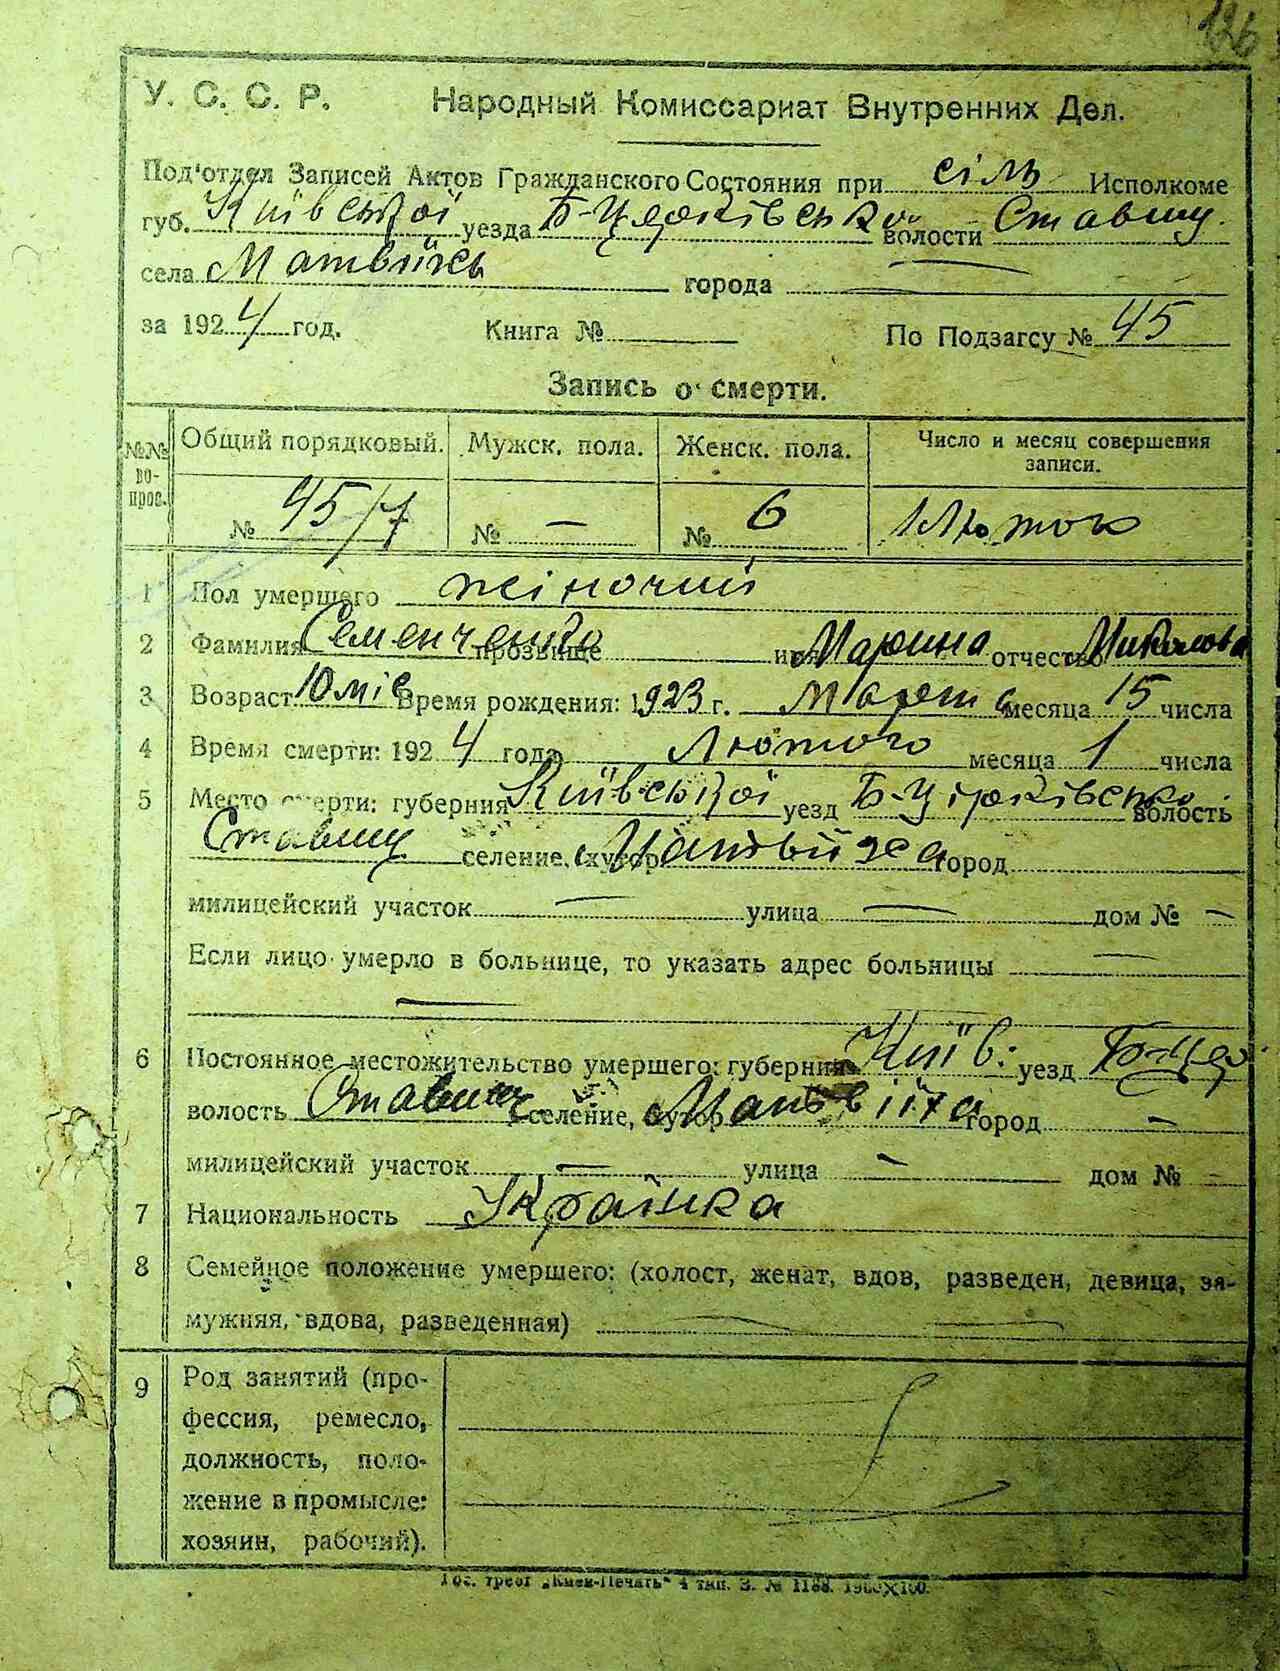 126
У. С. С. Р. Народный Комиссариат Внутренних Дел.
Под'отдел Записей Актов Гражданского Состояния при сіль Исполкоме
губ. Київської уезда Б-Церківсько волости Ставищ.
села Матвіїхы города —
за 1924 год. Книга № По Подзагсу № 45
Запись о смерти.
№№ во- прос. Общий порядковый. Мужск. пола. Женск. пола. Число и месяц совершения записи.
№ 45/7 № — № 6 1 Лютого
1 Пол умершего жіночий
2 Фамилия Семенченко прозвище имя Марина отчество Миколова
3 Возраст 10 міс Время рождения: 1923 г. Марта месяца 15 числа
4 Время смерти: 1924 года Лютого месяца 1 числа
5 Место смерти: губерния Київської уезд Б-Церківсько волость
Ставищ селение, (хутор Матвіїха город
милицейский участок — улица — дом № —
Если лицо умерло в больнице, то указать адрес больницы —
—
6 Постоянное местожительство умершего: губерния Київ: уезд Б-Цер
волость Ставищ селение, хутор Матвіїха город —
милицейский участок — улица — дом № —
7 Национальность Украінка
8 Семейное положение умершего: (холост, женат, вдов, разведен, девица, за-
мужняя, вдова, разведенная) —
9 Род занятий (про-
фессия, ремесло,
должность, поло-
жение в промысле:
хозяин, рабочий).
Гос. трест „Киев-Печать" 4 тип. З. № 1188.